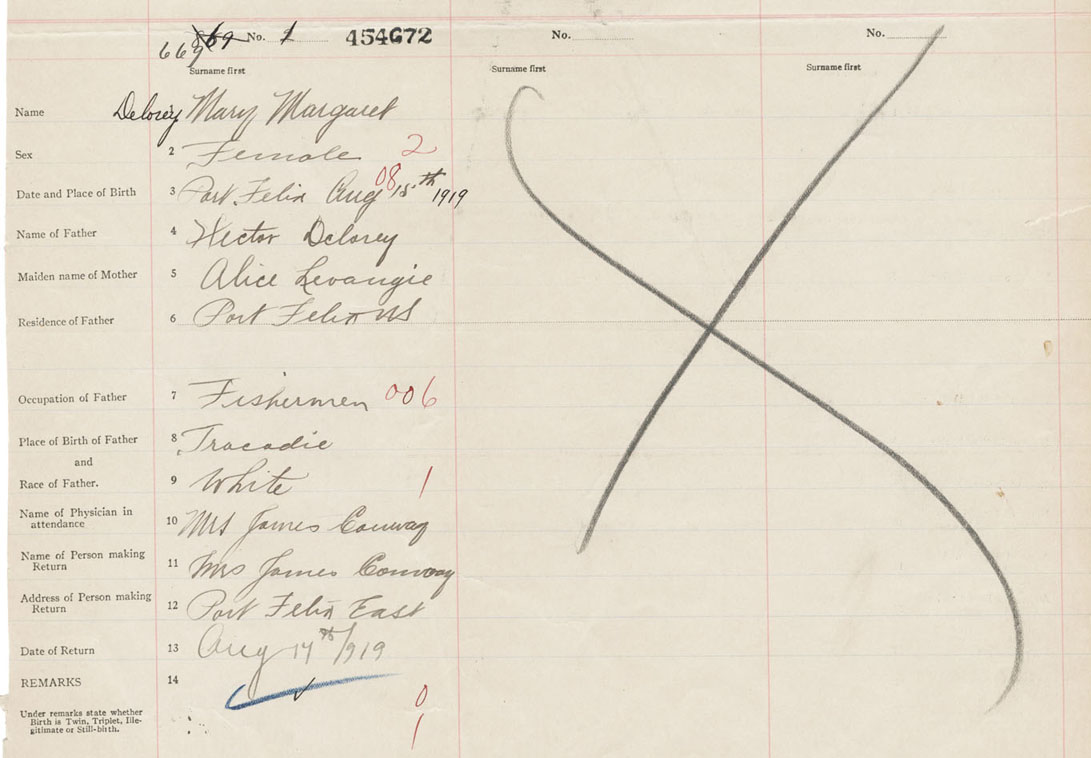 669 No. 1 454672 No. No.
Surname first Surname first Surname first
Name Delorey Mary Margaret
Sex 2 Female 2
Date and Place of Birth 3 Port Felix Aug 08 15th 1919
Name of Father 4 Hector Delorey
Maiden name of Mother 5 Alice Levangie
Residence of Father 6 Port Felix NS
Occupation of Father 7 Fishermen 006
Place of Birth of Father 8 Tracadie
and
Race of Father. 9 White 1
Name of Physician in
attendance 10 Mrs James Conway
Name of Person making
Return 11 Mrs James Conway
Address of Person making
Return 12 Port Felix East
Date of Return 13 Aug 17th /919
REMARKS 14
0
Under remarks state whether
Birth is Twin, Triplet, Ille-
gitimate or Still-birth. 1